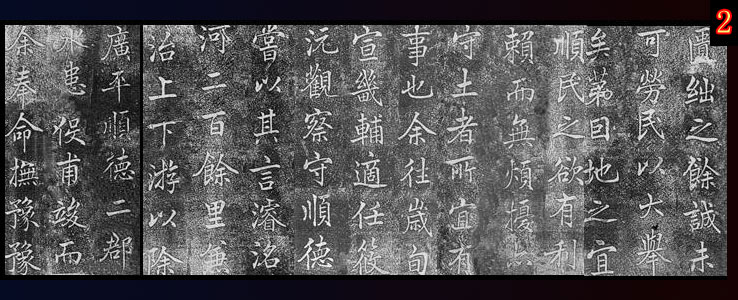 2
絀之餘誠未
可勞民以大舉
矣第囙地之宜
順民之欲有利
賴而無煩擾
守土者所宜有
事也余往歲旬
宣畿輔適任筱
沅觀察守順德
嘗以其言濬洺
河二百餘里兼
治上下游以除
廣平順德二郡
水患役甫竣而
余奉命撫豫豫